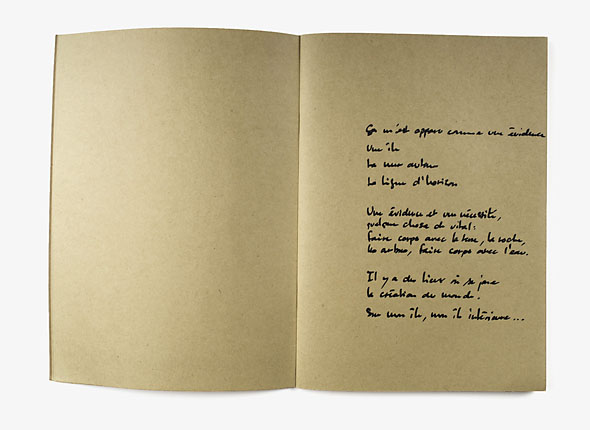 Ça m'est apparu comme une évidence
une île
La mer autour
La ligne d'horizon
Une évidence et une nécessité,
quelque chose de vital :
faire corps avec la terre, la roche,
les arbres, faire corps avec l'eau.
Il y a des lieux où se joue
la création du monde.
Sur une île, une île intérieure...